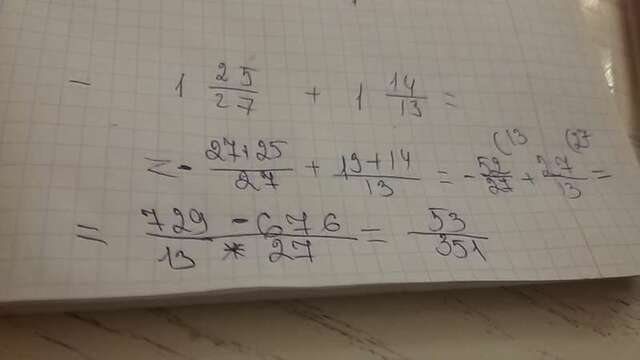 - 1 25/27 + 1 14/13 =
= - 27+25/27 + 13+14/13 = - 52/27 (13 + 27/13 (27 =
= 729 - 676/13 * 27 = 53/351